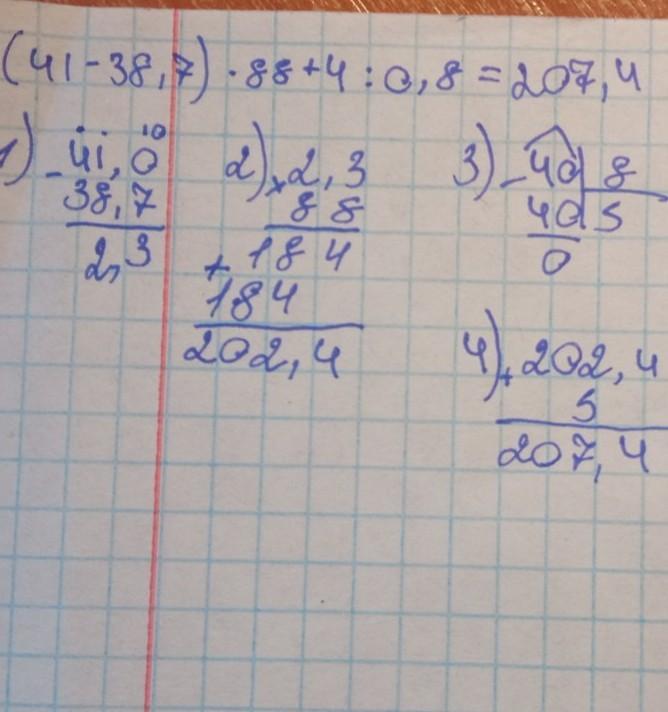 (41-38,7)·88+4:0,8=207,4
1) -41,0
10
38,7
2,3
2) ×2,3
88
+184
184
202,4
3) -40 8
40 5
0
4) +202,4
5
207,4